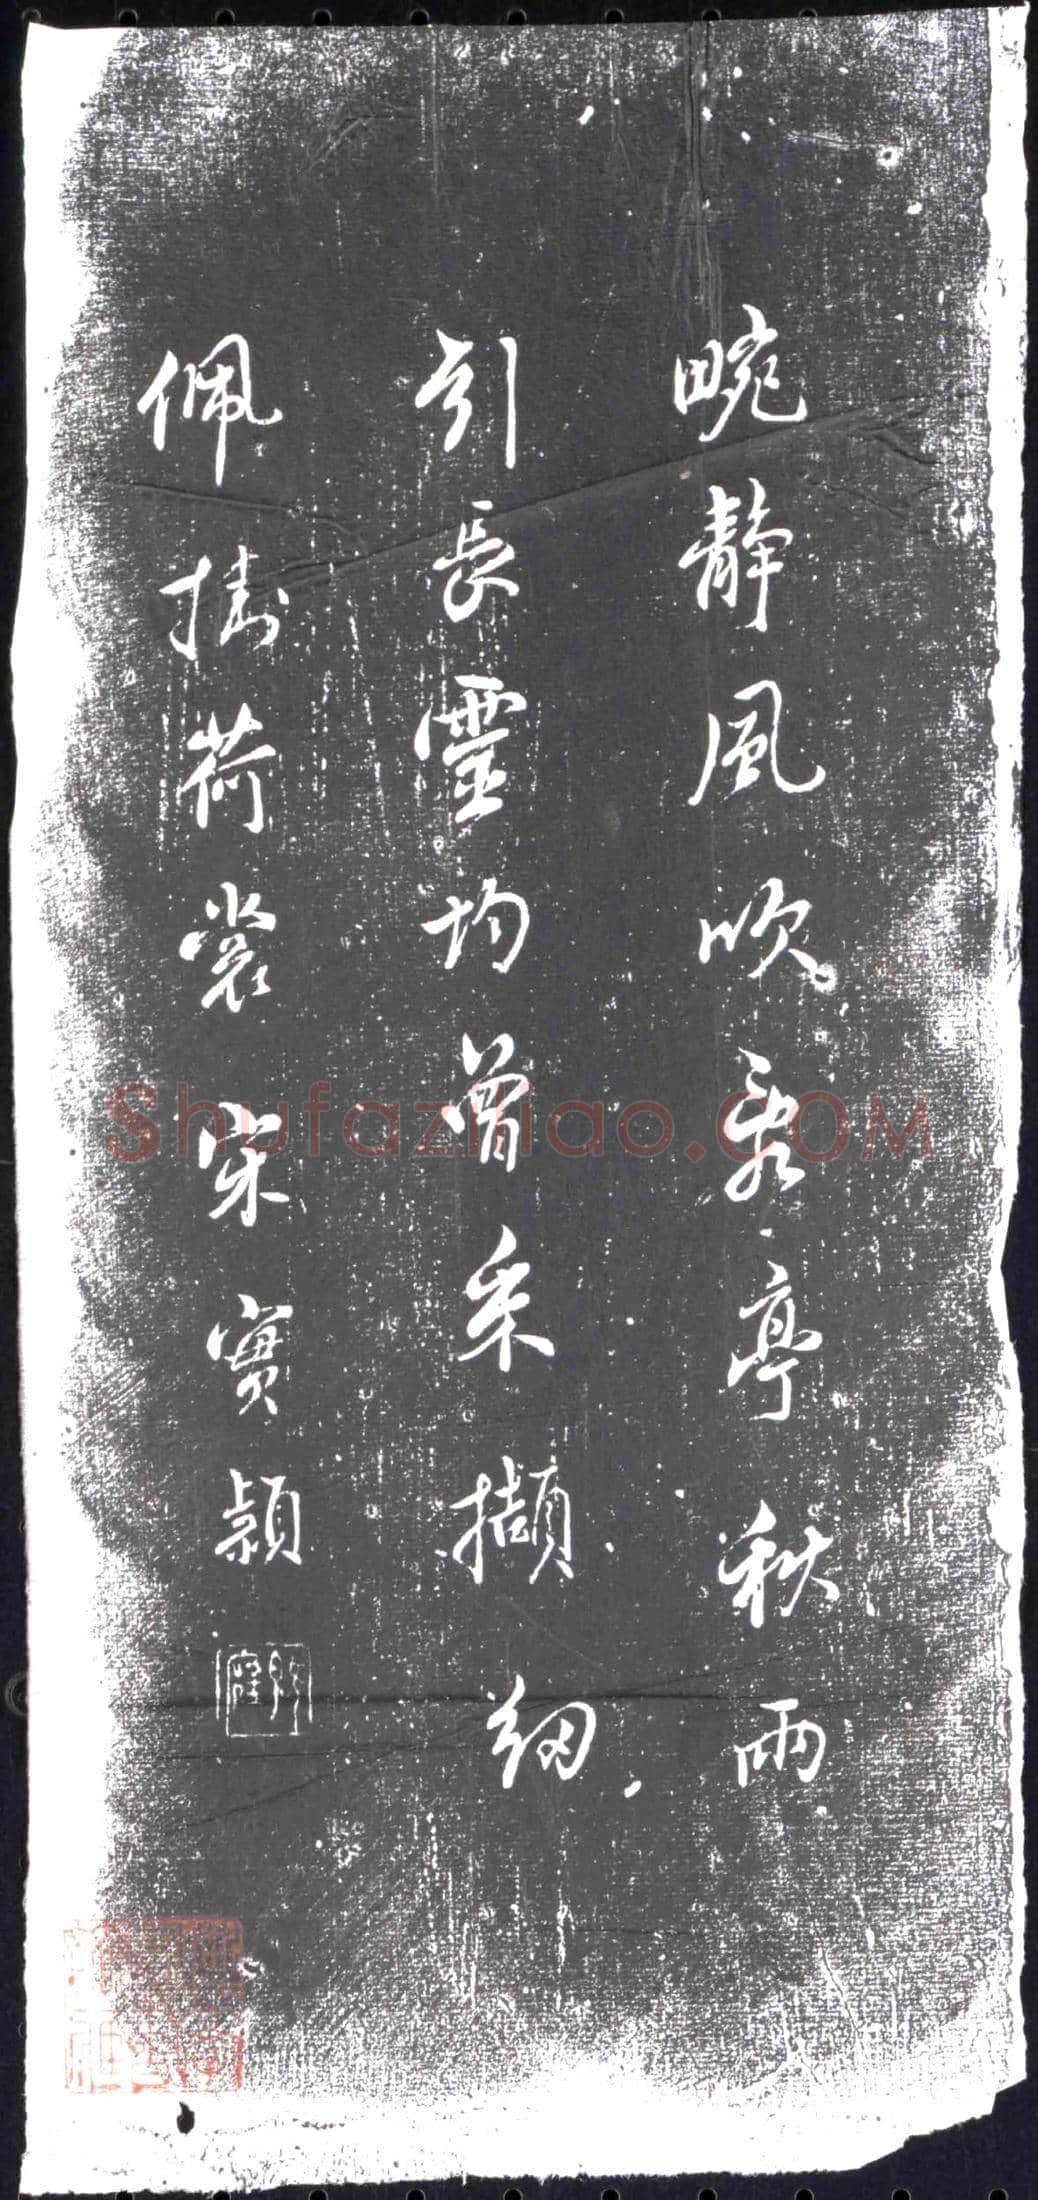 畹静風吹亂亭秋雨
引長靈均曾采擷紉
佩挂荷裳宋實穎
Shufaziliao.COM